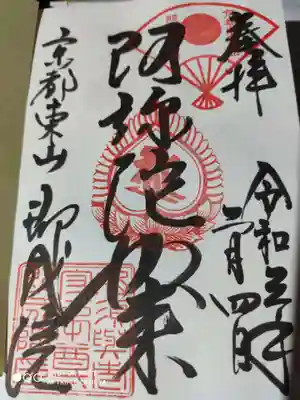 奉拝
令和三年
二月四日
阿弥陀如来
京都東山 即成院